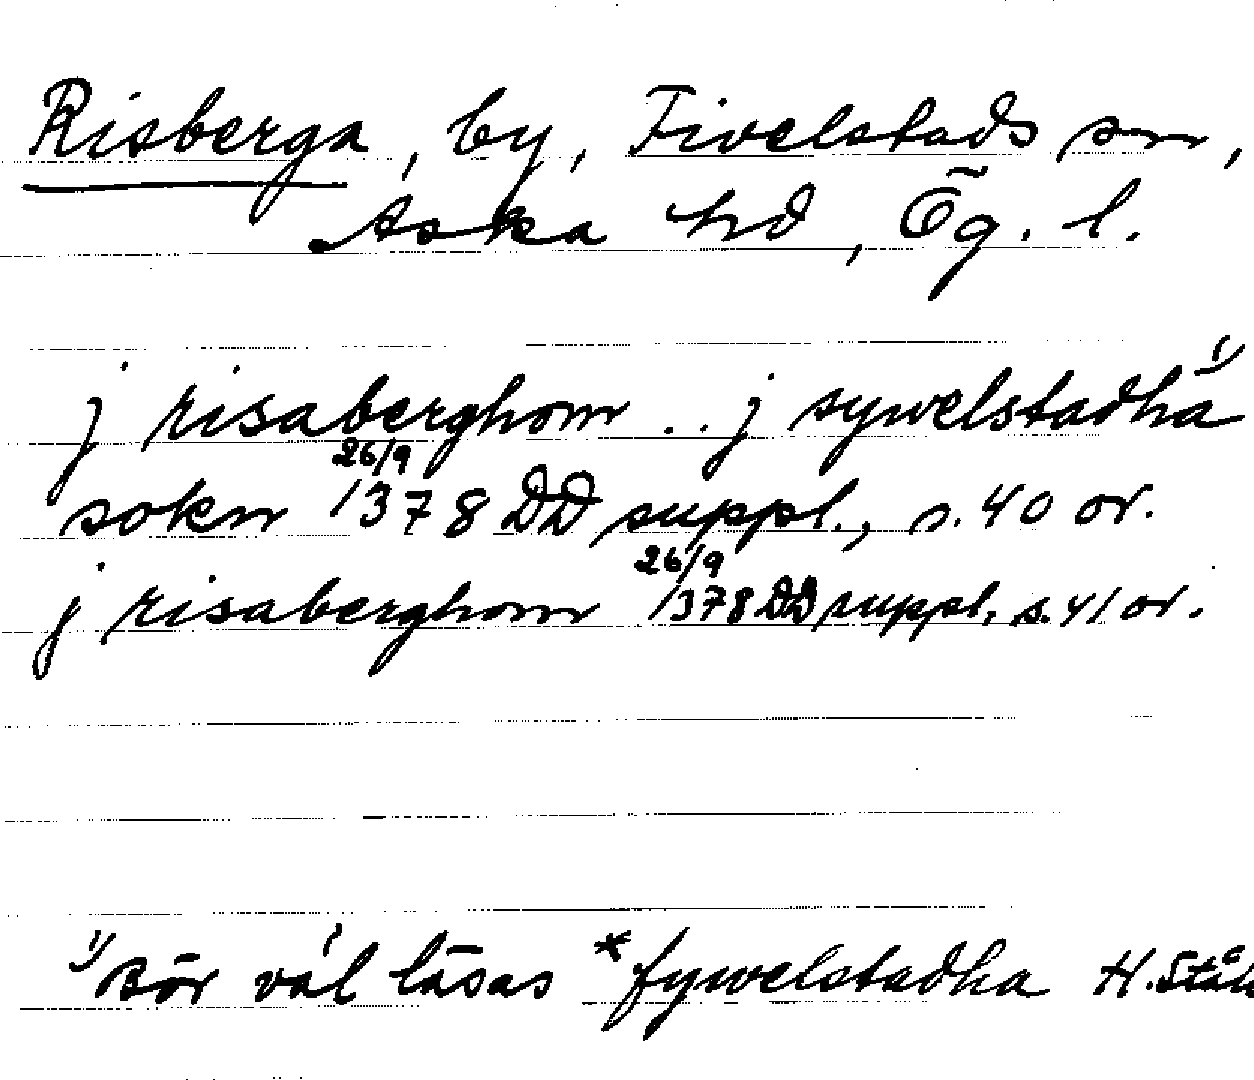 Risberga, by, Fivelstads sn,
Aska hd, Ög. l.
j risaberghom .. j sywelstadha 1)
sokn 26/9 1378 DD suppl., s. 40 or.
j risaberghom 26/9 1378 DD suppl. s. 41 or.
1) Bör väl läsas *fywelstadha H. Ståh